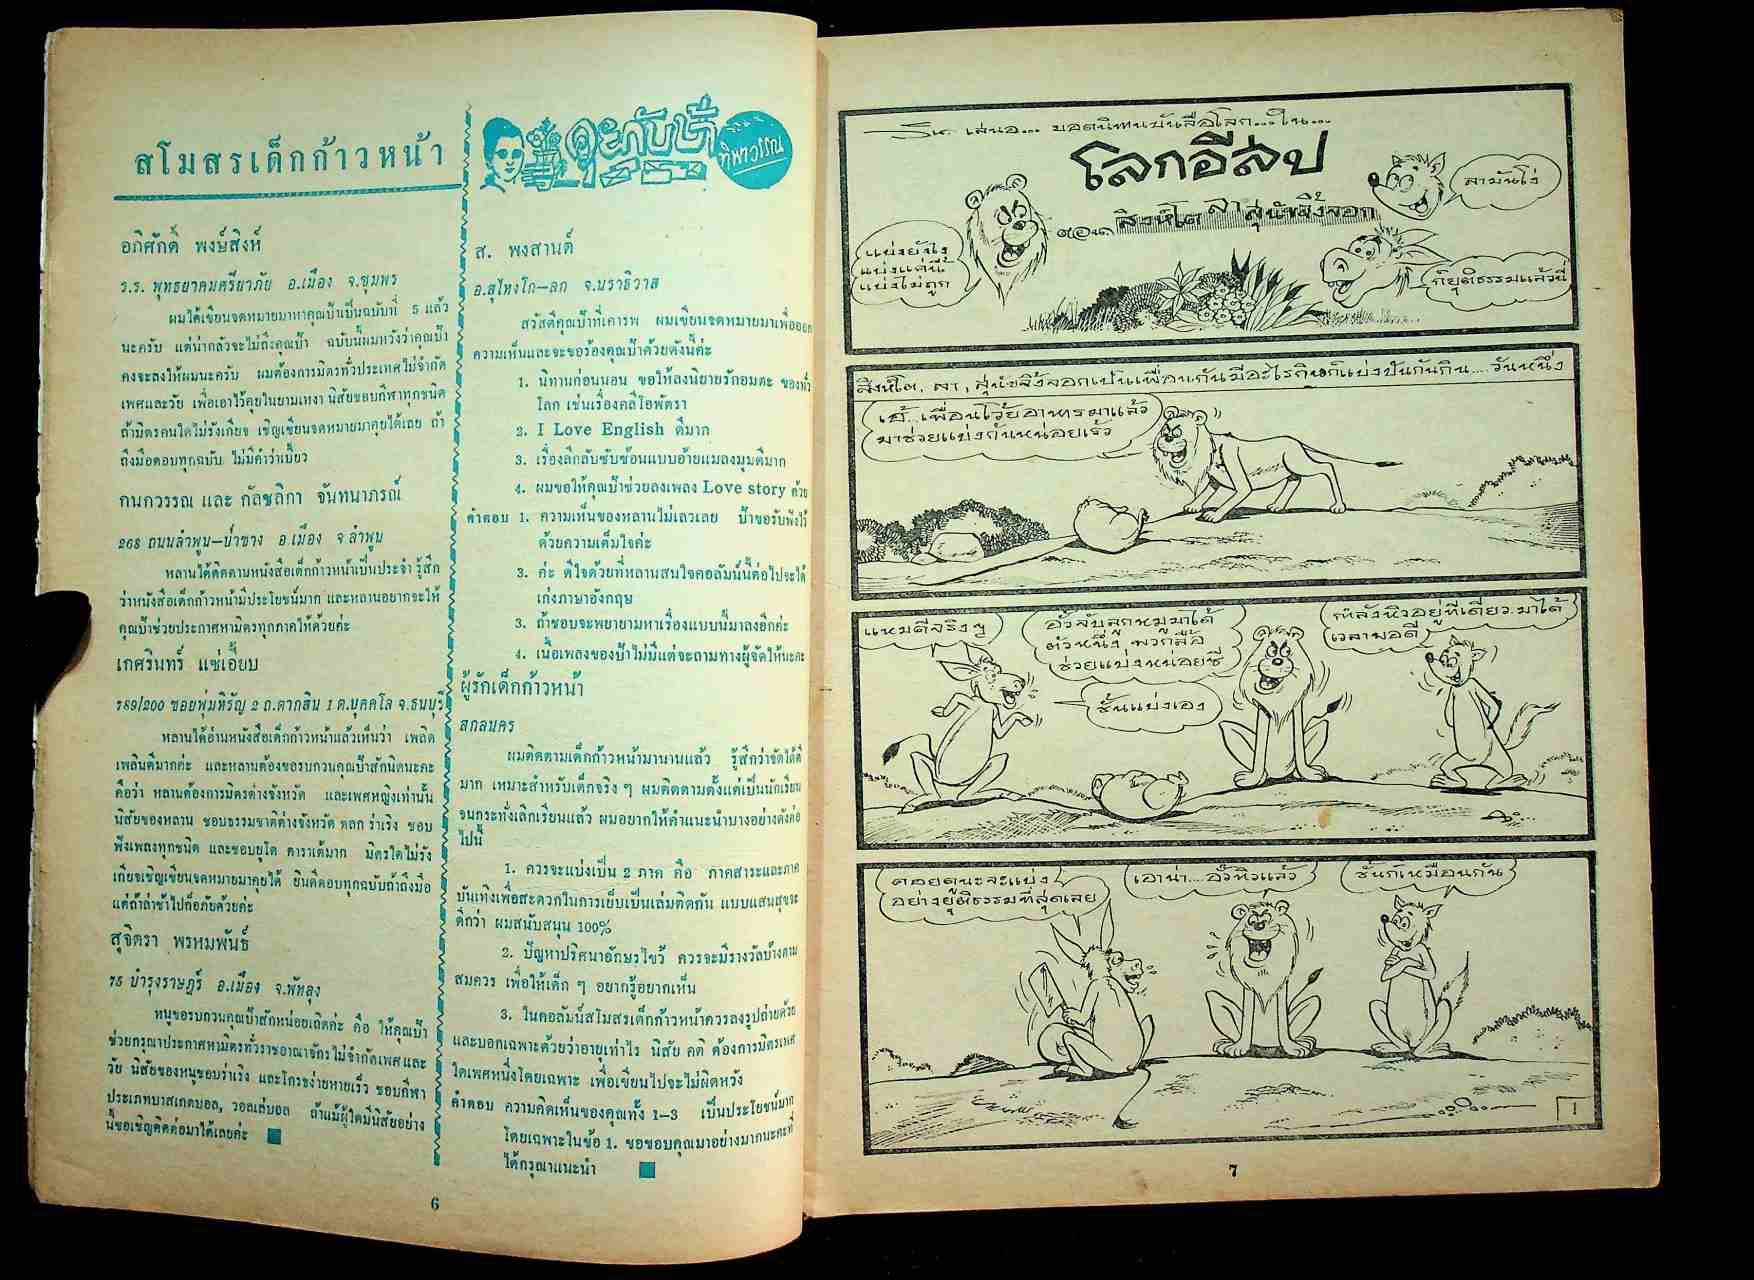 สโมสรเด็กก้าวหน้า
อภิศักดิ์ พงษ์สิงห์
ร.ร. พุทธยาคมศรียาภัย อ.เมือง จ.ชุมพร
ผมได้เขียนจดหมายมาหาคุณป้าเป็นฉบับที่ 5 แล้ว
นะครับ แต่น่ากลัวจะไม่ถึงคุณป้า ฉบับนี้ผมหวังว่าคุณป้า
คงจะลงให้ผมนะครับ ผมต้องการมิตรทั่วประเทศไม่จำกัด
เพศและวัย เพื่อเอาไว้คุยในยามเหงา นิสัยชอบกีฬาทุกชนิด
ถ้ามิตรคนใดไม่รังเกียจ เชิญเขียนจดหมายมาคุยได้เลย ถ้า
ถึงมือตอบทุกฉบับ ไม่มีคำว่าเบี้ยว
กนกวรรณ และ กัลชลิกา จันทนาภรณ์
268 ถนนลำพูน—ป่าซาง อ.เมือง จ.ลำพูน
หลานได้ติดตามหนังสือเด็กก้าวหน้าเป็นประจำ รู้สึก
ว่าหนังสือเด็กก้าวหน้ามีประโยชน์มาก และหลานอยากจะให้
คุณป้าช่วยประกาศหามิตรทุกภาคให้ด้วยค่ะ
เกศรินทร์ แซ่เอี้ยบ
789/200 ซอยพุ่มหิรัญ 2 ถ.ตากสิน 1 ต.บุคคโล จ.ธนบุรี
หลานได้อ่านหนังสือเด็กก้าวหน้าแล้วเห็นว่า เพลิด
เพลินดีมากค่ะ และหลานต้องขอรบกวนคุณป้าสักนิดนะคะ
คือว่า หลานต้องการมิตรต่างจังหวัด และเพศหญิงเท่านั้น
นิสัยของหลาน ชอบธรรมชาติต่างจังหวัด ตลก ร่าเริง ชอบ
ฟังเพลงทุกชนิด และชอบยูโด คาราเต้มาก มิตรใดไม่รัง
เกียจเชิญเขียนจดหมายมาคุยได้ ยินดีตอบทุกฉบับถ้าถึงมือ
แต่ถ้าล่าช้าไปก็อภัยด้วยค่ะ
สุจิตรา พรหมพันธ์
75 บำรุงราษฎร์ อ.เมือง จ.พัทลุง
หนูขอรบกวนคุณป้าสักหน่อยเถิดค่ะ คือ ให้คุณป้า
ช่วยกรุณาประกาศหามิตรทั่วราชอาณาจักรไม่จำกัดเพศและ
วัย นิสัยของหนูชอบร่าเริง และโกรธง่ายหายเร็ว ชอบกีฬา
ประเภทบาสเกตบอล, วอลเล่บอล ถ้าแม้ผู้ใดมีนิสัยอย่าง
นี้ขอเชิญติดต่อมาได้เลยค่ะ
6
คุยกับป้า
ทิพาวรรณ
ส. พงสานต์
อ.สุไหงโก—ลก จ.นราธิวาส
สวัสดีคุณป้าที่เคารพ ผมเขียนจดหมายมาเพื่อออก
ความเห็นและจะขอร้องคุณป้าด้วยดังนี้ค่ะ
1. นิทานก่อนนอน ขอให้ลงนิยายรักอมตะ ของทั่ว
โลก เช่นเรื่องคลีโอพัตรา
2. I Love English ดีมาก
3. เรื่องลึกลับซับซ้อนแบบอ้ายแมลงมุมดีมาก
4. ผมขอให้คุณป้าช่วยลงเพลง Love story ด้วย
คำตอบ 1. ความเห็นของหลานไม่เลวเลย ป้าขอรับฟังไว้
ด้วยความเต็มใจค่ะ
3. ค่ะ ดีใจด้วยที่หลานสนใจคอลัมน์นี้ต่อไปจะได้
เก่งภาษาอังกฤษ
3. ถ้าชอบจะพยายามหาเรื่องแบบนี้มาลงอีกค่ะ
4. เนื้อเพลงของป้าไม่มีแต่จะถามทางผู้จัดให้นะคะ
ผู้รักเด็กก้าวหน้า
สกลนคร
ผมติดตามเด็กก้าวหน้ามานานแล้ว รู้สึกว่าจัดได้ดี
มาก เหมาะสำหรับเด็กจริง ๆ ผมติดตามตั้งแต่เป็นนักเรียน
จนกระทั่งเลิกเรียนแล้ว ผมอยากให้คำแนะนำบางอย่างดังต่อ
ไปนี้
1. ควรจะแบ่งเป็น 2 ภาค คือ ภาคสาระและภาค
บันเทิงเพื่อสะดวกในการเย็บเป็นเล่มติดกัน แบบแสนสุขจะ
ดีกว่า ผมสนับสนุน 100%
2. ปัญหาปริศนาอักษรไขว้ ควรจะมีรางวัลบ้างตาม
สมควร เพื่อให้เด็ก ๆ อยากรู้อยากเห็น
3. ในคอลัมน์สโมสรเด็กก้าวหน้าควรลงรูปถ่ายด้วย
และบอกเฉพาะด้วยว่าอายุเท่าไร นิสัย คติ ต้องการมิตรเพศ
ใดเพศหนึ่งโดยเฉพาะ เพื่อเขียนไปจะไม่ผิดหวัง
คำตอบ ความคิดเห็นของคุณทั้ง 1—3 เป็นประโยชน์มาก
โดยเฉพาะในข้อ 1. ขอขอบคุณมาอย่างมากนะคะที่
ได้กรุณาแนะนำ
เสนอ... ยอดนิทานบันลือโลก...ใน...
โลกอีสป
ตอน สิงห์โต ลา สุนัขจิ้งจอก
ลามันโง่
แบ่งยังไง
แบ่งแค่นี้
แบ่งไม่ถูก
ก็ยุติธรรมแล้วนี่
สิงห์โต, ลา, สุนัขจิ้งจอกเป็นเพื่อนกันมีอะไรกินก็แบ่งปันกันกิน.... วันหนึ่ง
เฮ้..เพื่อนโว้ยอาหารมาแล้ว
มาช่วยแบ่งกันหน่อยเร็ว
แหมดีจริงๆ
อั๊วลับลูกหมูมาได้
ตัวหนึ่ง พวกลื้อ
ช่วยแบ่งหน่อยซี
กำลังหิวอยู่ทีเดียว มาได้
เวลาพอดี
ชั้นแบ่งเอง
คอยดูนะจะแบ่ง
อย่างยุติธรรมที่สุดเลย
เอาน่า...อั๊วหิวแล้ว
ชั้นก็เหมือนกัน
1
7